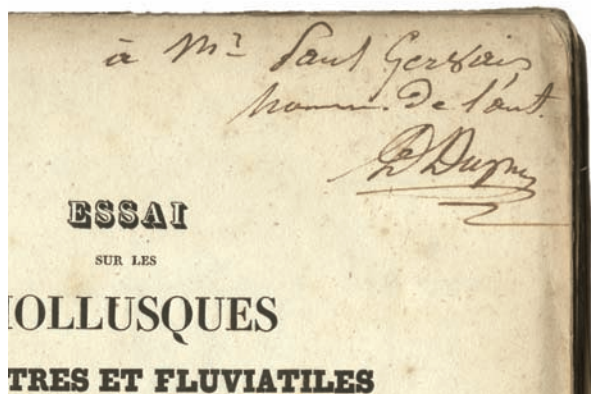 à Mr Paul Gervais
homm. de l'aut.
D Dupuy
ESSAI
SUR LES
IOLLUSQUES
TRES ET FLUVIATILES